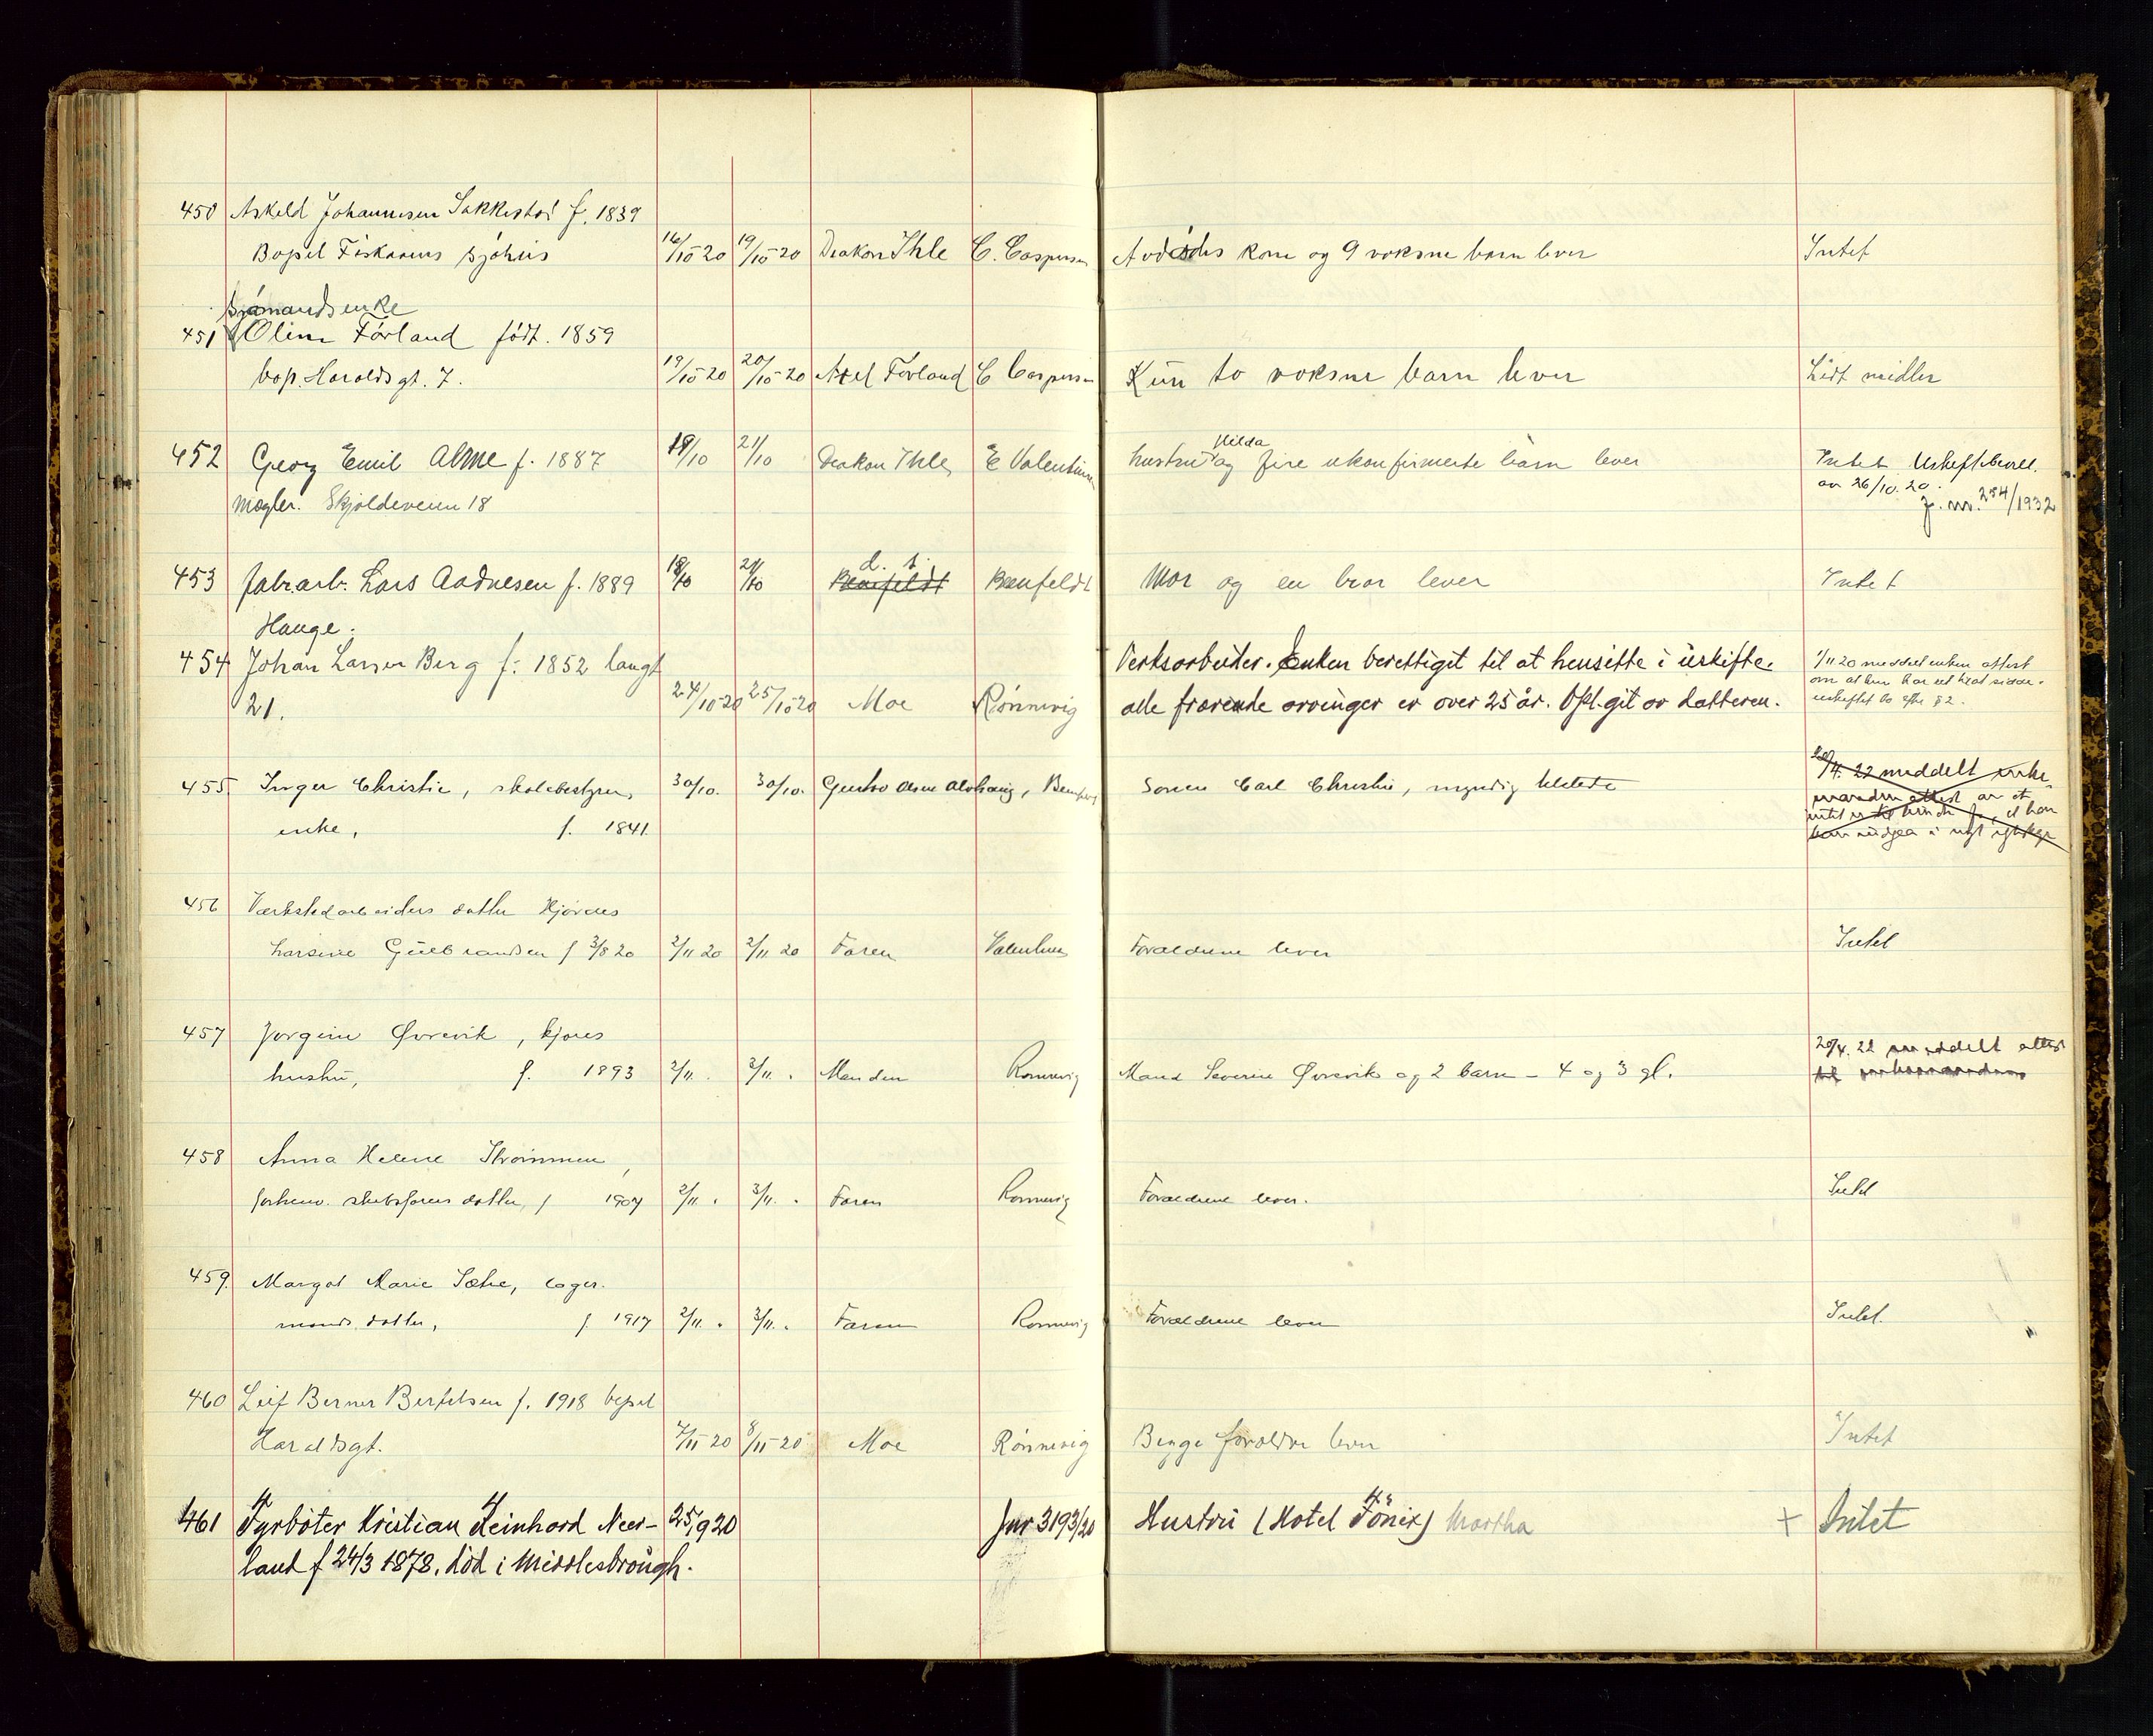 450 Askeld Johannesen Sakkestad f. 1839
Bopel Fiskarens sjøhus 16/10 20 19/10 20 Diakon Ihle C. Caspersen Avdødes kone og 9 voksne barn lever Intet
Sjømandsenke
451 Oline Førland født. 1859
bop. Haraldsgt. 7. 19/10 20 20/10 20 Axel Førland C Caspersen Kun to voksne barn lever Lidt midler
452 Georg Emil Alme f. 1887 19/10 21/10 Diakon Ihle E Valentinsen hustru Hilda og fire ukonfirmerte barn lever Intet Uskiftebevil.
av 26/10. 20.
Mægler. Skjoldeveien 18 J. nr. 254/1932
453 fabr.arb. Lars Aadnesen f. 1889 18/10 21/10 d. s. Benfeldt Benfeldt Mor og en bror lever Intet
Hauge.
454 Johan Larsen Berg f. 1852 Langt Verksarbeider. Enken berettiget til at hensitte i uskifte. 1/11 20 meddelt enken attest
om at hun har ret til at sidde
21. 24/10 20 25/10 20 Moe Rønnevig alle fraværende arvinger er over 25 år. Opl. git av datteren. uskiftet bo efter § 2.
455. Inger Christie, skolebestyrer 30/10. 30/10. Gustav Arne Alvhaug, Sønnen Carl Christie, myndig tilstede 4. 22 meddelt enke
manden attest om at
intet er til hinder for, at han
enke, f. 1841. kan indgaa i nyt egteskap
456 Verkstedarbeiders datter Hjørdis
Larsine Gulbrandsen f 3/8 20 2/11 20 2/11 20 Faren Valentinsen Forældrene lever Intet
457 Jorgine Øvrevik, kjøres 20/4. 22 meddelt attest
hustru, f. 1893 2/11. 3/11. Manden Rønnevig Mand Severin Øvrevik og 2 barn – 4 og 3 gl. til enkemanden
458 Anna Helene Strømmen,
forhenv. skibsførers datter, f 1907 2/11. 3/11. Faren Rønnevig Forældrene lever. Intet
459. Margot Marie Sæthe, lager.
mands datter, f 1917 2/11. 3/11. Faren Rønnevig Forældrene lever Intet.
460 Leif Berner Bertelsen f. 1918 bopel
Haraldsgt. 7/11 20 8/11 20 Moe Rønnevig Begge forældre lever Intet
461 Fyrbøter Kristian Reinhard Neer- 25/9 20 Jnr 3193/20 Hustru (Hotel Fønix) Martha + Intet
land f 24/3 1878. død i Middlesbrough.